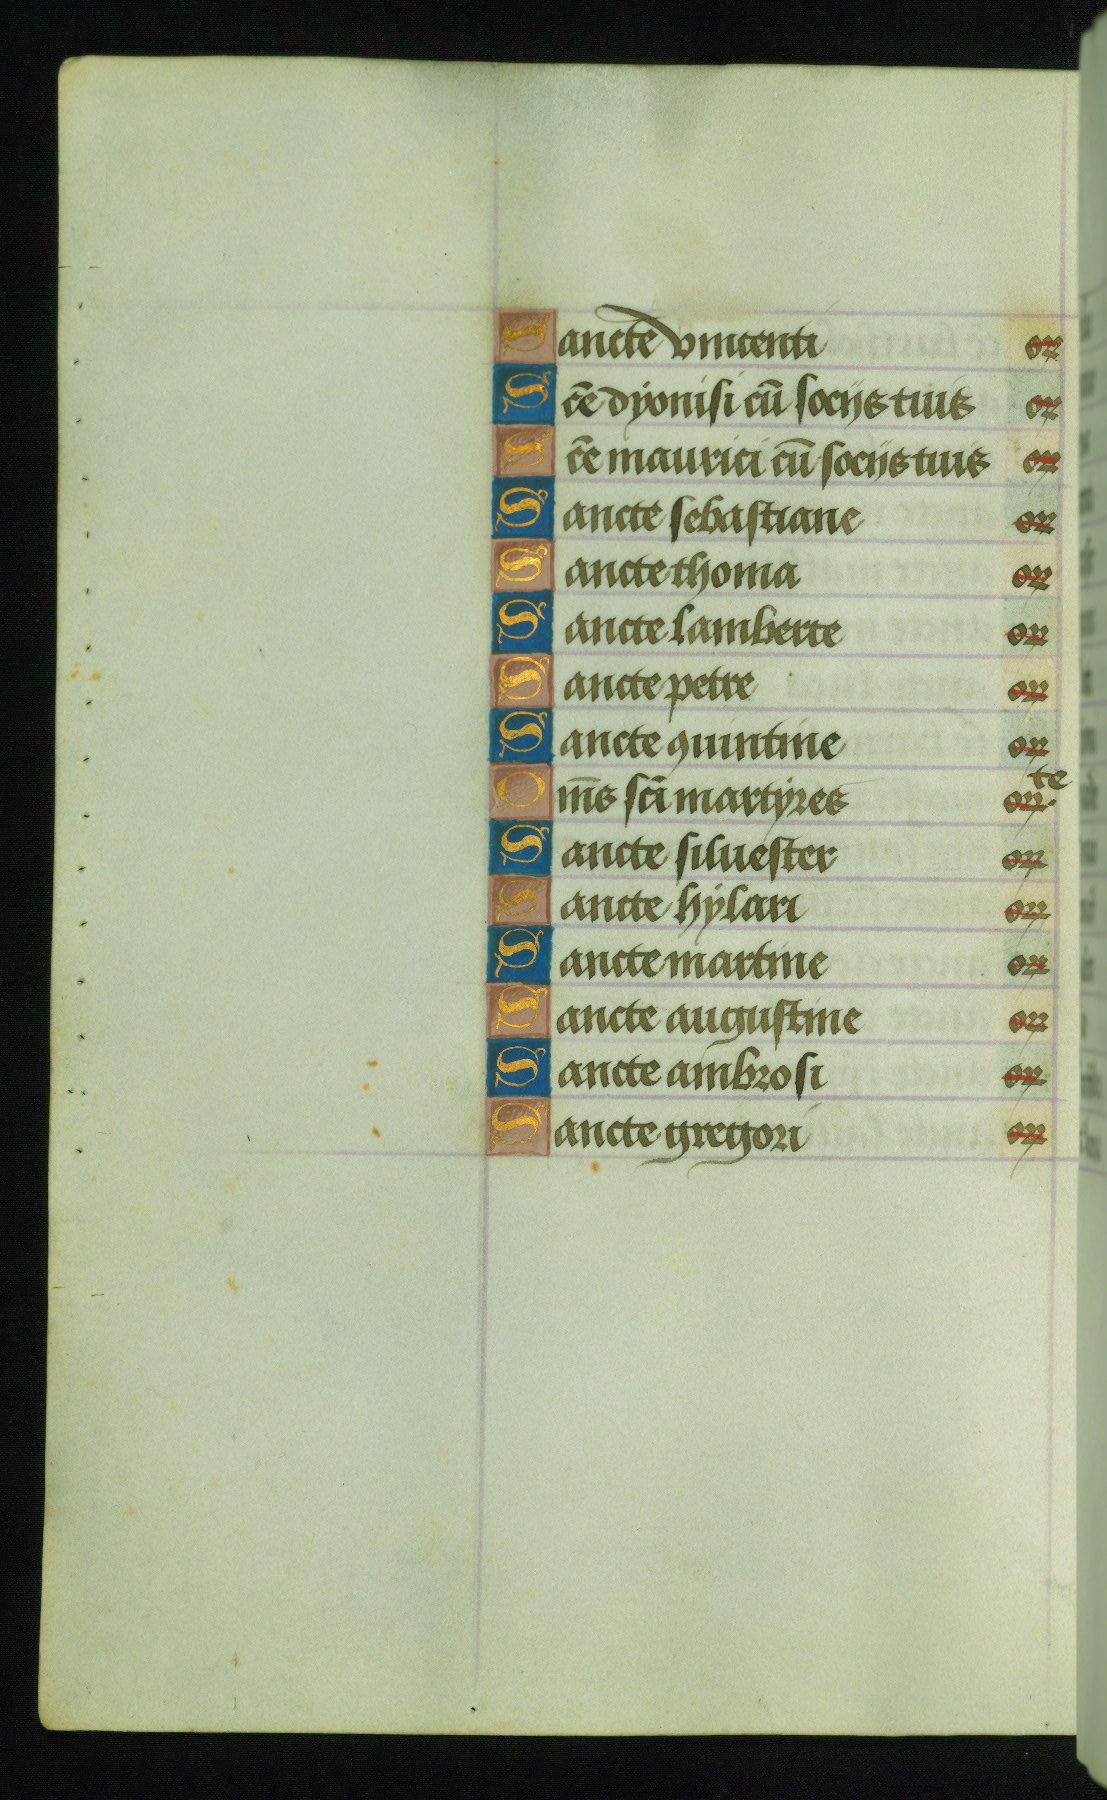 Sancte vincenti or
Sc̄e dyonisi cū socijs tuis or
Sc̄e maurici cū socijs tuis or
Sancte sebastiane or
Sancte thoma or
Sancte lamberte or
Sancte petre or
Sancte quintine or
Om̄s sc̄i martyres orte
Sancte siluester or
Sancte hylari or
Sancte martine or
Sancte augustine or
Sancte ambrosi or
Sancte gregori or